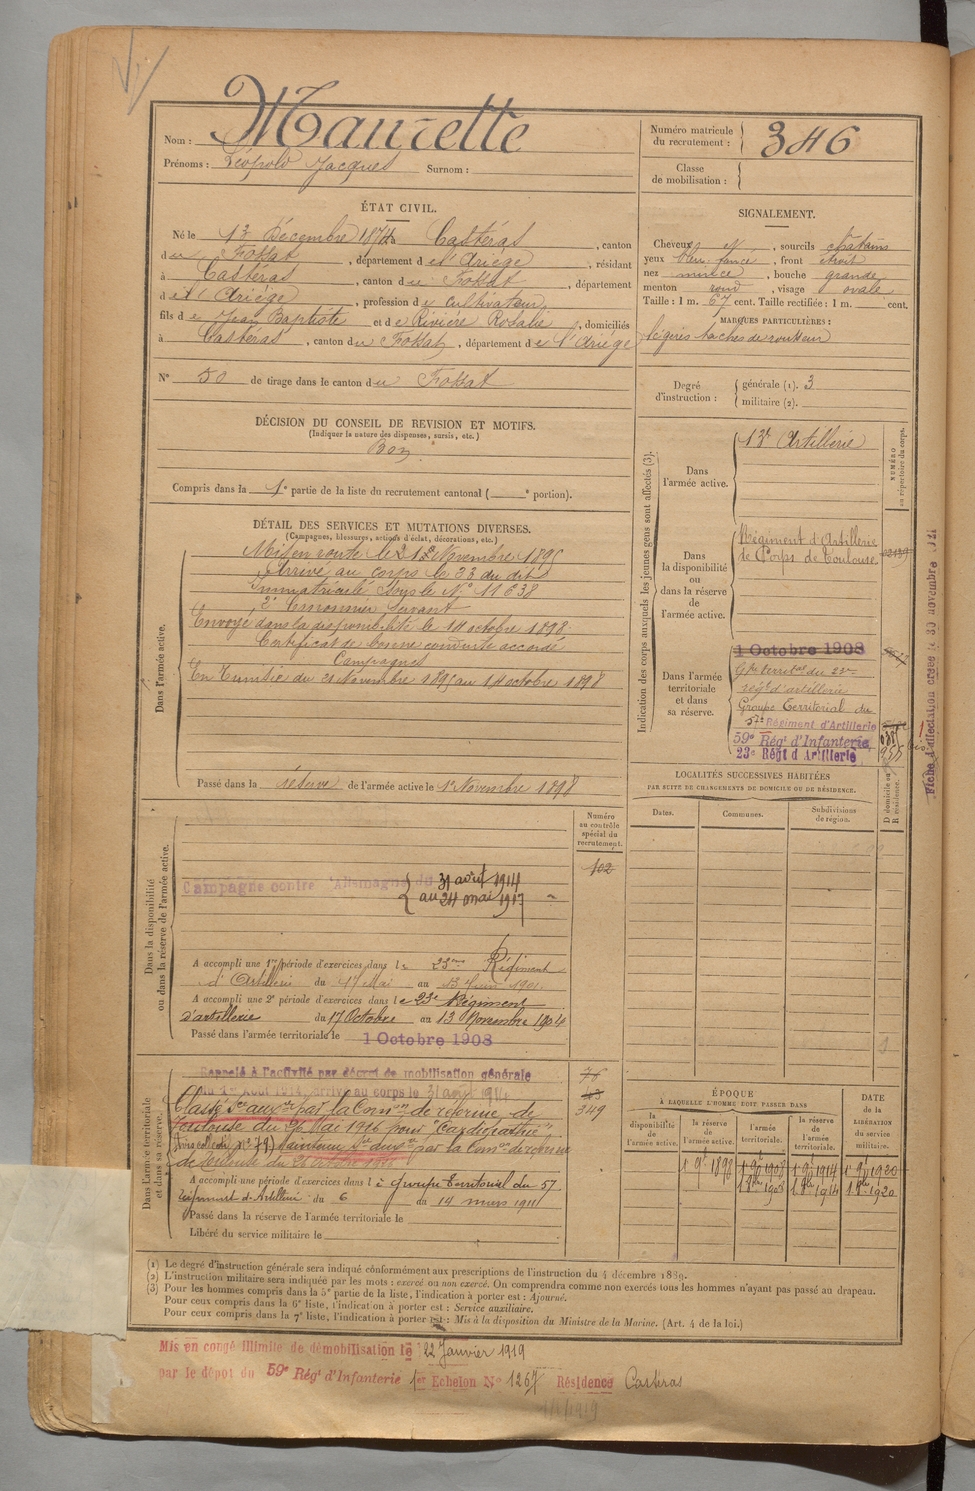 Nom : Maurette
Prénoms : Léopold Jacques Surnom :
Numéro matricule du recrutement : 346
Classe de mobilisation :
ÉTAT CIVIL.
Né le 13 Décembre 1874 à Castéras, canton
du Fossat, département de l'Ariège, résidant
à Castéras, canton du Fossat, département
de l'Ariège, profession de cultivateur
fils de Jean Baptiste et de Rivière Rosalie, domiciliés
à Castéras, canton du Fossat, département de l'Ariège
N° 50 de tirage dans le canton du Fossat
SIGNALEMENT.
Cheveux , sourcils châtains
yeux bleu foncé, front étroit
nez mince, bouche grande
menton rond, visage ovale
Taille : 1 m. 67 cent. Taille rectifiée : 1 m. cent.
MARQUES PARTICULIÈRES :
légères taches de rousseur
Degré d'instruction : générale (1). 3
militaire (2).
DÉCISION DU CONSEIL DE REVISION ET MOTIFS.
(Indiquer la nature des dispenses, sursis, etc.)
Bon
Compris dans la 1e partie de la liste du recrutement cantonal ( e portion).
DÉTAIL DES SERVICES ET MUTATIONS DIVERSES.
(Campagnes, blessures, actions d'éclat, décorations, etc.)
Dans l'armée active.
Mis en route le Novembre 1895
Arrivé au corps le 23 du dit
Immatriculé sous le N° 11638
2e Canonnier Servant
Envoyé dans la disponibilité le 14 octobre 1898.
Certificat de bonne conduite accordé
Campagnes
En Tunisie du 21 Novembre 1895 au 14 octobre 1898
Passé dans la réserve de l'armée active le 1er Novembre 1898
Indication des corps auxquels les jeunes gens sont affectés (3).
NUMÉRO au répertoire du corps.
Dans l'armée active.
13e Artillerie
Dans la disponibilité ou dans la réserve de l'armée active.
Régiment d'Artillerie
de Corps de Toulouse
Dans l'armée territoriale et dans sa réserve.
1 Octobre 1908
Gpe territal du 23me
régt d'artillerie
Groupe Territorial du
57e Régiment d'Artillerie
59e Régt d'Infanterie
23e Régt d'Artillerie
LOCALITÉS SUCCESSIVES HABITÉES
PAR SUITE DE CHANGEMENTS DE DOMICILE OU DE RÉSIDENCE.
Dates. Communes. Subdivisions de région. D domicile ou R résidence.
Dans la disponibilité ou dans la réserve de l'armée active.
Numéro au contrôle spécial du recrutement.
102
Campagne contre l'Allemagne du 31 août 1914
au 24 mai 1917
A accompli une 1re période d'exercices dans le 23me Régiment
d'Artillerie du 17 Mai au 13 Juin 1901
A accompli une 2e période d'exercices dans le 23e Régiment
d'artillerie du 17 Octobre au 13 Novembre 1904
Passé dans l'armée territoriale le 1 Octobre 1908
Dans l'armée territoriale et dans sa réserve.
Rappelé à l'activité par décret de mobilisation générale
du 1er Août 1914, arrivé au corps le 31 août 1914
349
Classé Sce auxre par la Comon de réforme de
Toulouse du 26 Mai 1916 pour "Cardiopathie"
Maintenu Sce auxre par la Comon de réforme
de Toulouse du
A accompli une période d'exercices dans le Groupe Territorial du 57
Régiment d'Artillerie du 6 au 14 mars 1911
Passé dans la réserve de l'armée territoriale le
Libéré du service militaire le
ÉPOQUE
À LAQUELLE L'HOMME DOIT PASSER DANS
la disponibilité de l'armée active. la réserve de l'armée active. l'armée territoriale. la réserve de l'armée territoriale. DATE de la LIBÉRATION du service militaire.
1 9bre 1898 1 9bre 1908 1 9bre 1914 1er 9bre 1920
1 8bre 1908 1 8bre 1914 1 8bre 1920
(1) Le degré d'instruction générale sera indiqué conformément aux prescriptions de l'instruction du 4 décembre 1889.
(2) L'instruction militaire sera indiquée par les mots : exercé ou non exercé. On comprendra comme non exercés tous les hommes n'ayant pas passé au drapeau.
(3) Pour les hommes compris dans la 5e partie de la liste, l'indication à porter est : Ajourné.
Pour ceux compris dans la 6e liste, l'indication à porter est : Service auxiliaire.
Pour ceux compris dans la 7e liste, l'indication à porter est : Mis à la disposition du Ministre de la Marine. (Art. 4 de la loi.)
Mis en congé illimité de démobilisation le 22 Janvier 1919
par le dépôt du 59e Régt d'Infanterie 1er Echelon N° 1267 Résidence Castéras